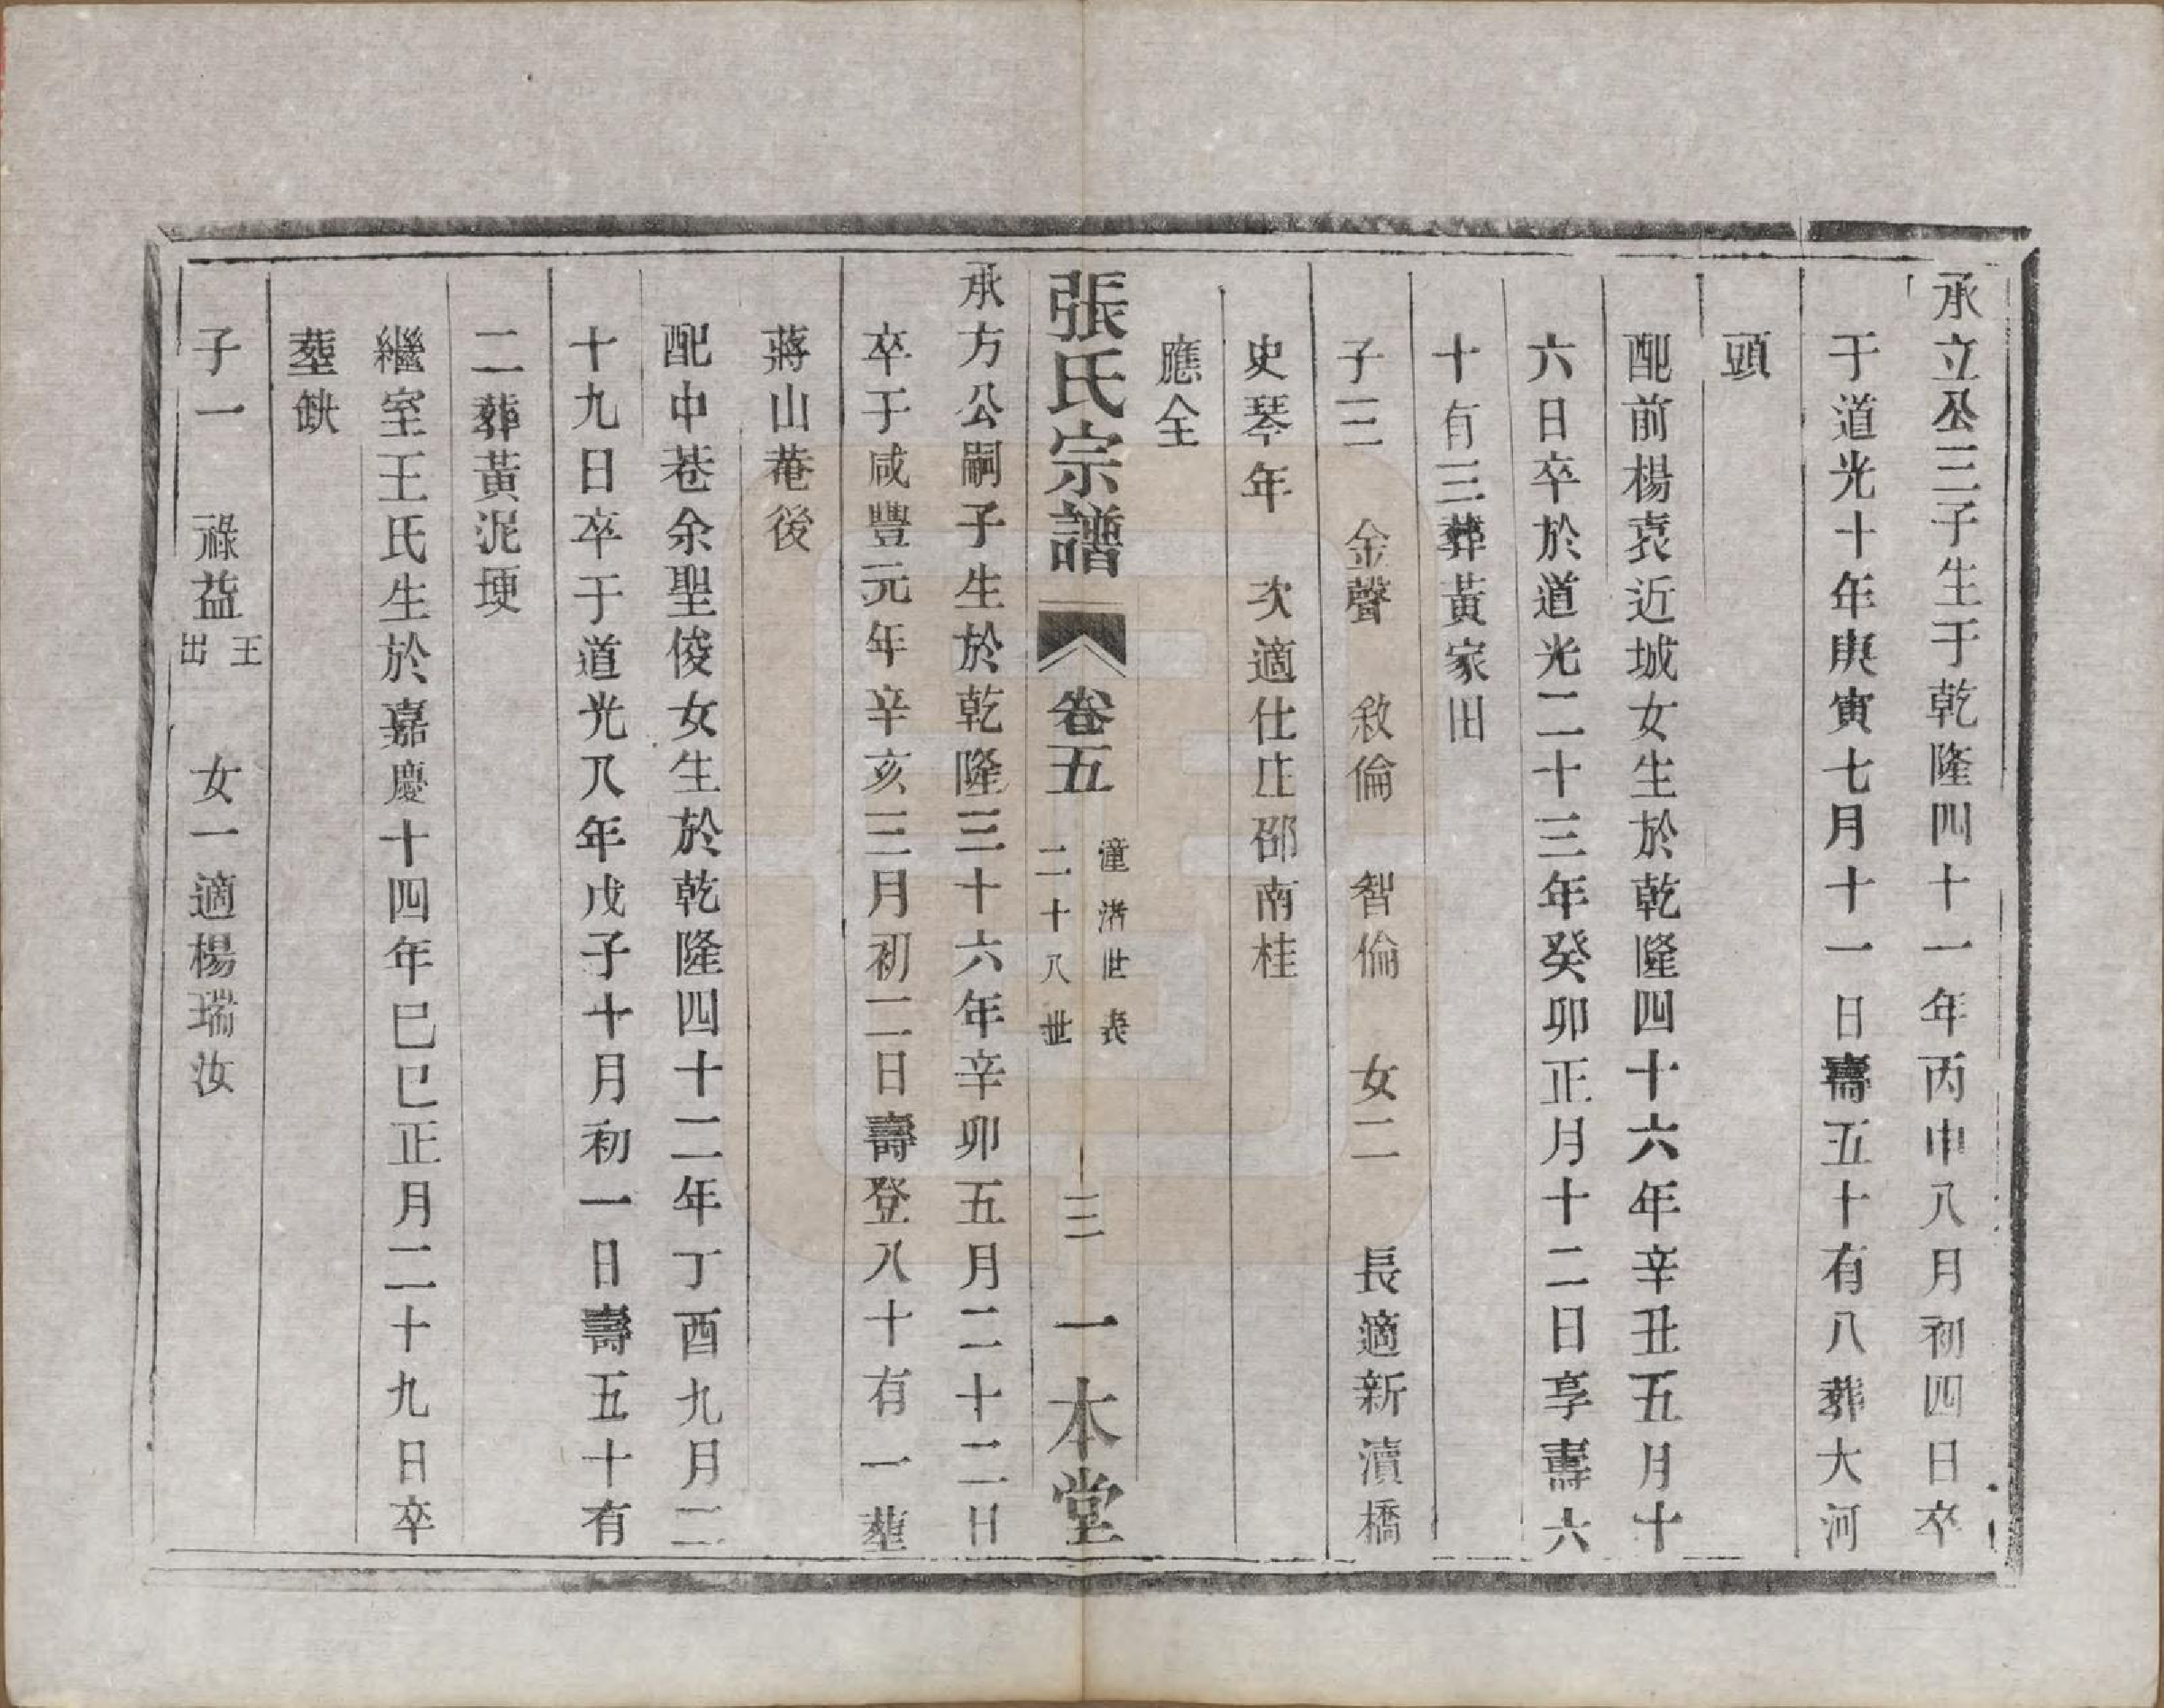 承立公三子生于乾隆四十一年丙申八月初四日卒
于道光十年庚寅七月十一日壽五十有八葬大河
頭
配前楊袁近城女生於乾隆四十六年辛丑五月十
六日卒於道光二十三年癸卯正月十二日享壽六
十有三葬黃家田
子三　金聲　敘倫　智倫　女二　長適新瀆橋
史琴年　次適仕庄邵南桂
應全
張氏宗譜　卷五　潼渚世表　二十八世　三　一本堂
承方公嗣子生於乾隆三十六年辛卯五月二十二日
卒于咸豐元年辛亥三月初二日壽登八十有一塟
蔣山菴後
配中巷余聖俊女生於乾隆四十二年丁酉九月二
十九日卒于道光八年戊子十月初一日壽五十有
二葬黃泥埂
繼室王氏生於嘉慶十四年巳巳正月二十九日卒
塟缺
子一　祿益王出　女一適楊瑞汝